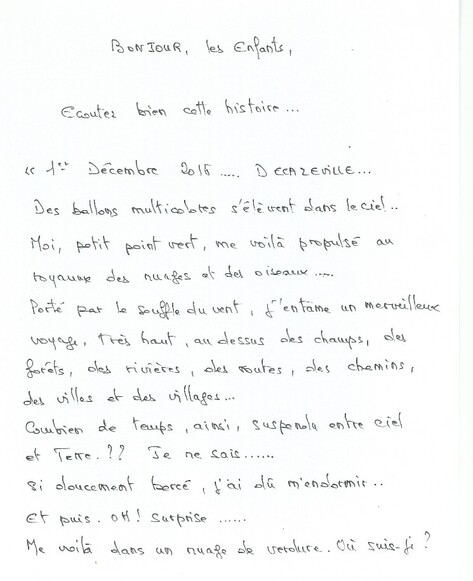 BONJOUR, les Enfants,
Ecoutez bien cette histoire...
« 1er Décembre 2016 ..... DECAZEVILLE...
Des ballons multicolores s'élèvent dans le ciel..
Moi, petit point vert, me voilà propulsé au
royaume des nuages et des oiseaux.....
Porté par le souffle du vent, j'entame un merveilleux
voyage, très haut, au dessus des champs, des
forêts, des rivières, des routes, des chemins,
des villes et des villages...
Combien de temps, ainsi, suspendu entre ciel
et Terre.?? Je ne sais......
Si doucement bercé, j'ai dû m'endormir..
Et puis. OH! Surprise ......
Me voilà dans un nuage de verdure. Où suis-je?